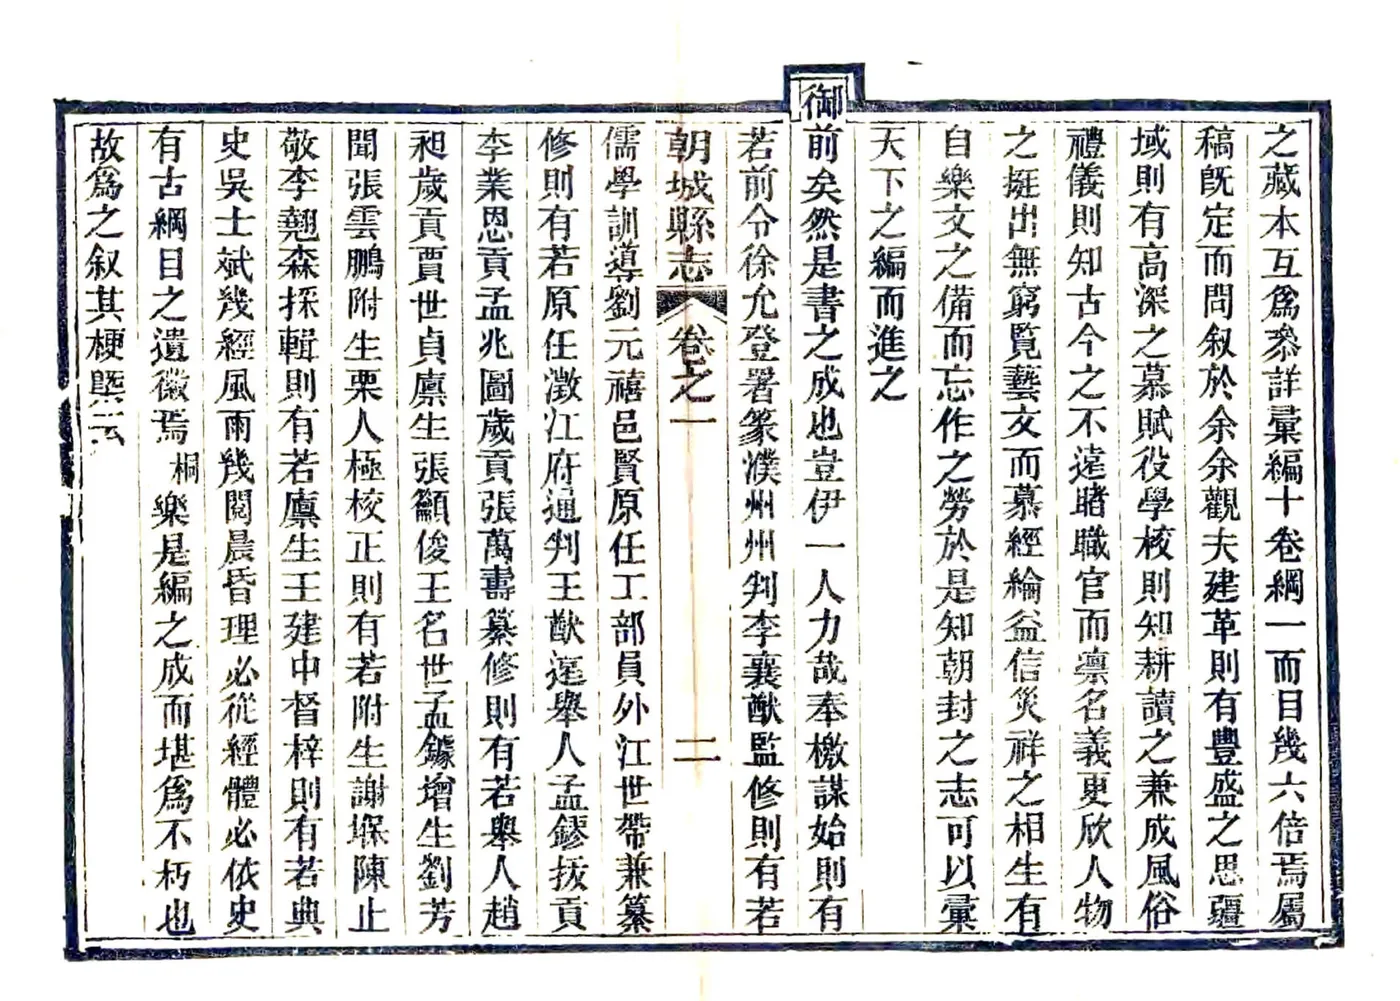 之藏本互爲叅詳彙編十卷綱一而目幾六倍焉屬
稿旣定而問叙於余余觀夫建革則有豐盛之思疆
域則有高深之慕賦役學校則知耕讀之兼成風俗
禮儀則知古今之不遠睹職官而凛名義更欣人物
之挺出無窮覧藝文而慕經綸益信災祥之相生有
自樂文之備而忘作之勞於是知朝封之志可以彙
天下之編而進之
御前矣然是書之成也豈伊一人力哉奉檄謀始則有
若前令徐允登署篆濮州州判李襄猷監修則有若
朝城縣志 卷之一 二
儒學訓導劉元禧邑賢原任工部員外江世帶兼纂
修則有若原任澂江府通判王猷遠舉人孟鏐拔貢
李業恩貢孟兆圖歲貢張萬壽纂修則有若舉人趙
昶歲貢賈世貞廪生張籲俊王名世孟鐻增生劉芳
聞張雲鵬附生栗人極核正則有若附生謝堢陳止
敬李兢森採輯則有若廪生王建中督梓則有若典
史吳士斌幾經風雨幾閱晨昏理必從經體必依史
有古綱目之遺徽焉桐樂是編之成而堪爲不朽也
故爲之叙其梗槩云